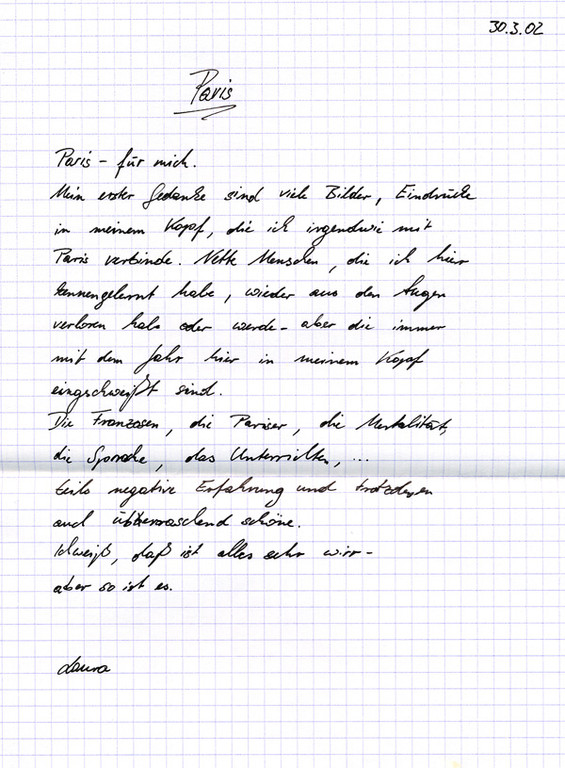 30.3.02
Paris
Paris - für mich.
Mein erster Gedanke sind viele Bilder, Eindrücke
in meinem Kopf, die ich irgendwie mit
Paris verbinde. Nette Menschen, die ich hier
kennengelernt habe, wieder aus den Augen
verloren habe oder werde - aber die immer
mit dem Jahr hier in meinem Kopf
eingschweißt sind.
Die Franzosen, die Pariser, die Mentalität,
die Sprache, das Unterrichten, ...
teils negative Erfahrung und trotzdem
auch überraschend schöne.
Ich weiß, daß ist alles sehr wirr -
aber so ist es.
Laura